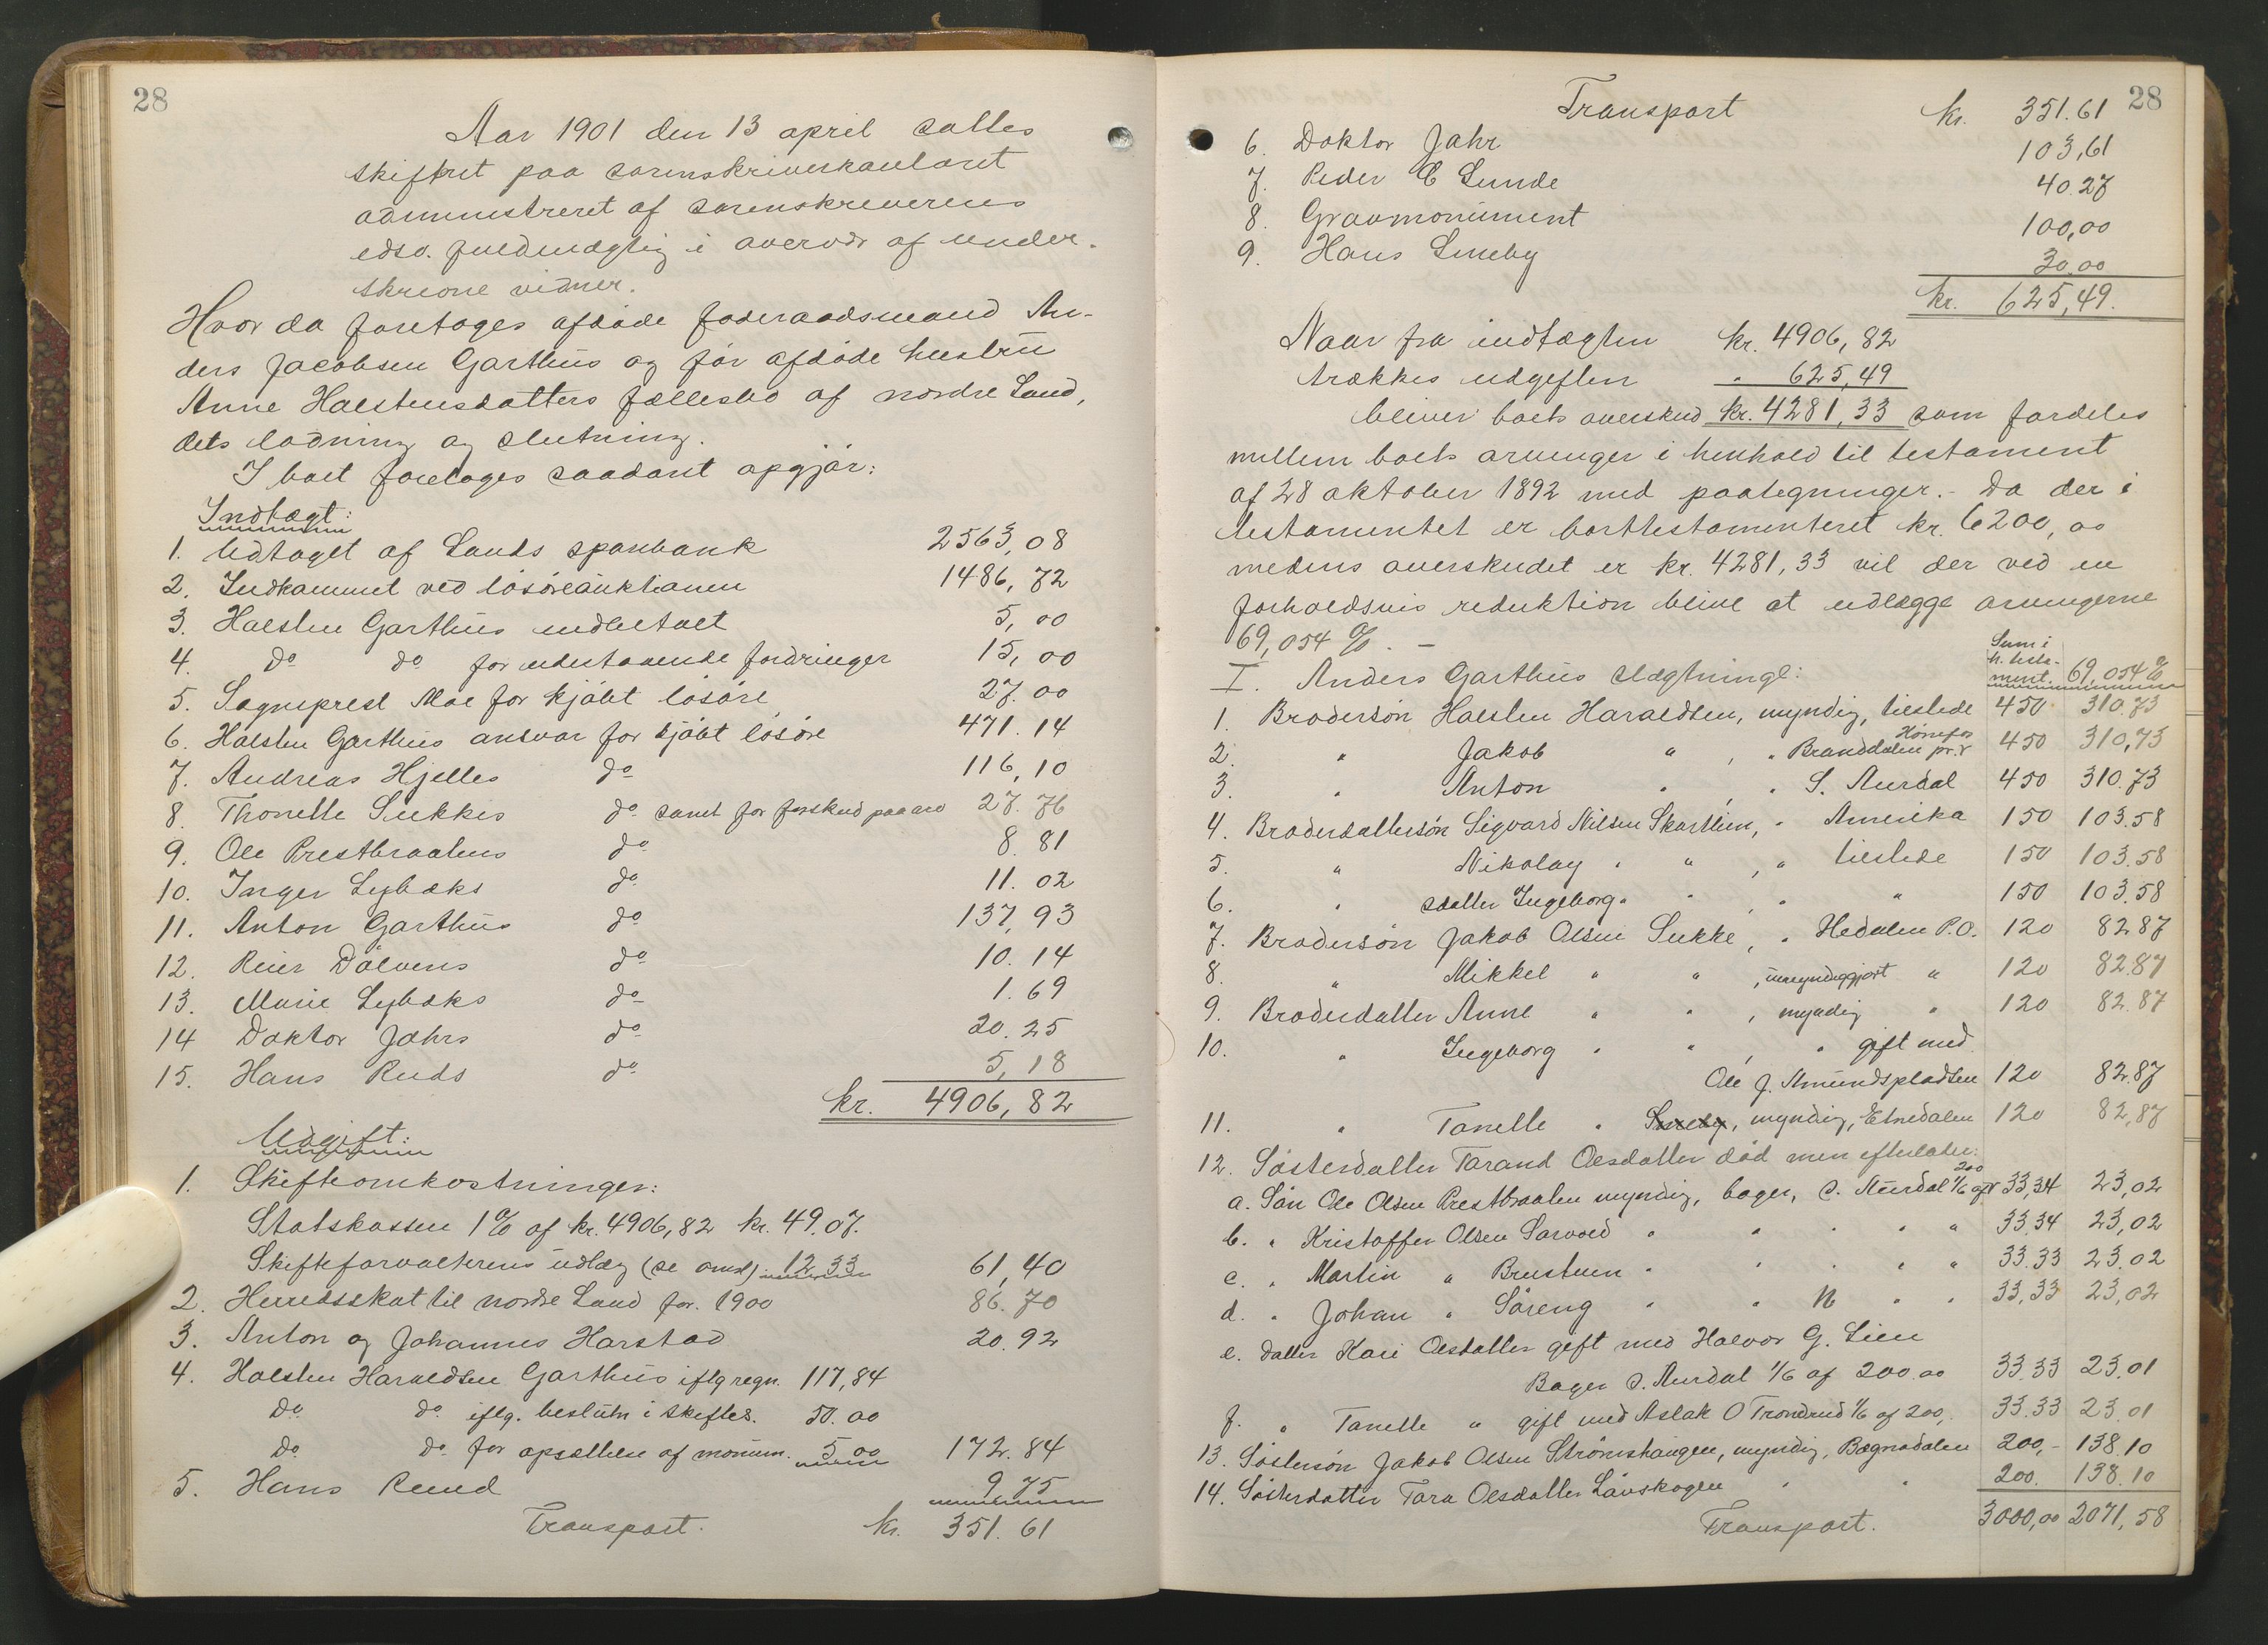 28
Aar 1901 den 13 april sattes
skifteret paa sorenskriverkontoret
administreret af sorenskriverens
edsv. fuldmægtig i overvær af under-
skrevne vidner.
Hvor da foretoges afdøde føderaadsmand An-
ders Jacobsen Garthus og før afdøde hustru
Anne Halstensdatters fællesbo af nordre Land,
dets lodning og slutning.
I boet foretoges saadant opgjør:
Indtægt:
1. Udtaget af Lands sparebank 2563,08
2. Indkommet ved løsøreauktionen 1486,72
3. Halsten Garthus indbetalt 5,00
4. do do for udestaaende fordringer 15,00
5. Sogneprest Moe for kjøbt løsøre 27.00
6. Halsten Garthus ansvar for kjøbt løsøre 471.14
7. Andreas Hjelles do 116,10
8. Thonette Sukkes do samt for forskud paa arv 27.76
9. Ole Prestbraatens do 8.81
10. Inger Lybæks do 11.02
11. Anton Garthus do 137,93
12. Reier Dölvens do 10.14
13. Marie Lybæks do 1.69
14 Doktor Jahrs do 20.25
15. Hans Ruds do 5,18
kr. 4906,82
Udgift:
1. Skifteomkostninger:
Statskassen 1% af kr. 4906,82 kr. 49.07.
Skifteforvalterens udlæg (se omsl) 12.33 61,40
2. Herredsskat til nordre Land for 1900 86.70
3. Anton og Johannes Harstad 20.92
4. Halsten Haraldsen Garthus iflg regn. 117,84
do do iflg. beslutn i skiftes. 50.00
do do for opsættelse af monum. 5.00 172.84
5. Hans Ruud 9.75
Transport. kr. 351.61
28
Transport kr. 351.61
6. Doktor Jahr 103,61
7. Peder C Lunde 40.27
8. Gravmonument 100,00
9. Hans Smeby 30.00
kr. 625,49.
Naar fra indtægten kr. 4906,82
trækkes udgiften " 625,49
bliver boets overskud kr. 4281,33 som fordeles
mellem boets arvinger i henhold til testament
af 28 oktober 1892 med paategninger. - Da der i
testamentet er borttestamenteret kr. 6200,00
medens overskudet er kr. 4281,33 vil der ved en
forholdsvis reduktion blive at udlægge arvingerne
69,054 %. -
Sum i
h. testa-
ment. 69,054 %
I. Anders Garthus slægtninge:
1. Brodersøn Halsten Haraldsen, myndig, tilstede 450 310.73
2. " Jakob " , " Branddalen pr. Hønefos 450 310,73
3. " Anton " , " S. Aurdal 450 310.73
4. Broderdattersøn Sigvard Nilsen Skartlien, " Amerika 150 103.58
5. " Nikolay " " , " tilstede 150 103.58
6. " sdatter Ingeborg " " , " " 150 103.58
7. Brodersøn Jakob Olsen Sukke, " Hedalen P.O. 120 82.87
8. " Mikkel " " , umyndiggjort " 120 82.87
9. Broderdatter Anne " " , myndig " 120 82.87
10. " Ingeborg " " , " gift med
Ole J. Amundspladsen 120 82.87
11. " Tonette " Smeby, myndig, Etnedalen 120 82,87
12. Søsterdatter Tarand Olsdatter død men efterlader:
a. Søn Ole Olsen Prestbraaten myndig, bager, S. Aurdal 1/6 af 200 33,34 23,02
b. " Kristoffer Olsen " " " " " 33.34 23,02
c. " Martin " " " " " " 33.33 23.02
d. " Johan " Söreng " " N " " 33,33 23,02
e. datter Kari Olsdatter gift med Halvor G. Lien
Bagn S. Aurdal 1/6 af 200.00 33.33 23.01
f. " Tonette " gift med Aslak O Trondrud 1/6 af 200, 33.33 23.01
13. Søstersøn Jakob Olsen Strömshaugen, myndig, Bægnadalen 200,- 138.10
14. Søsterdatter Tora Olsdatter " " 200. 138.10
Transport. 3000,00 2071,58